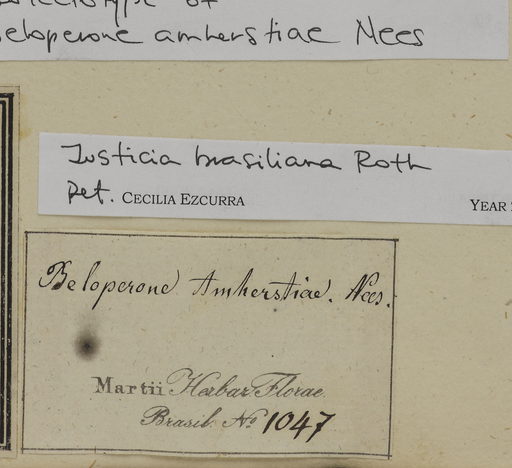 of
Beloperone amherstiae Nees
Justicia brasiliana Roth
Det. CECILIA EZCURRA YEAR
Beloperone Amherstiae. Nees.
Martii Herbar. Florae
Brasil. No 1047